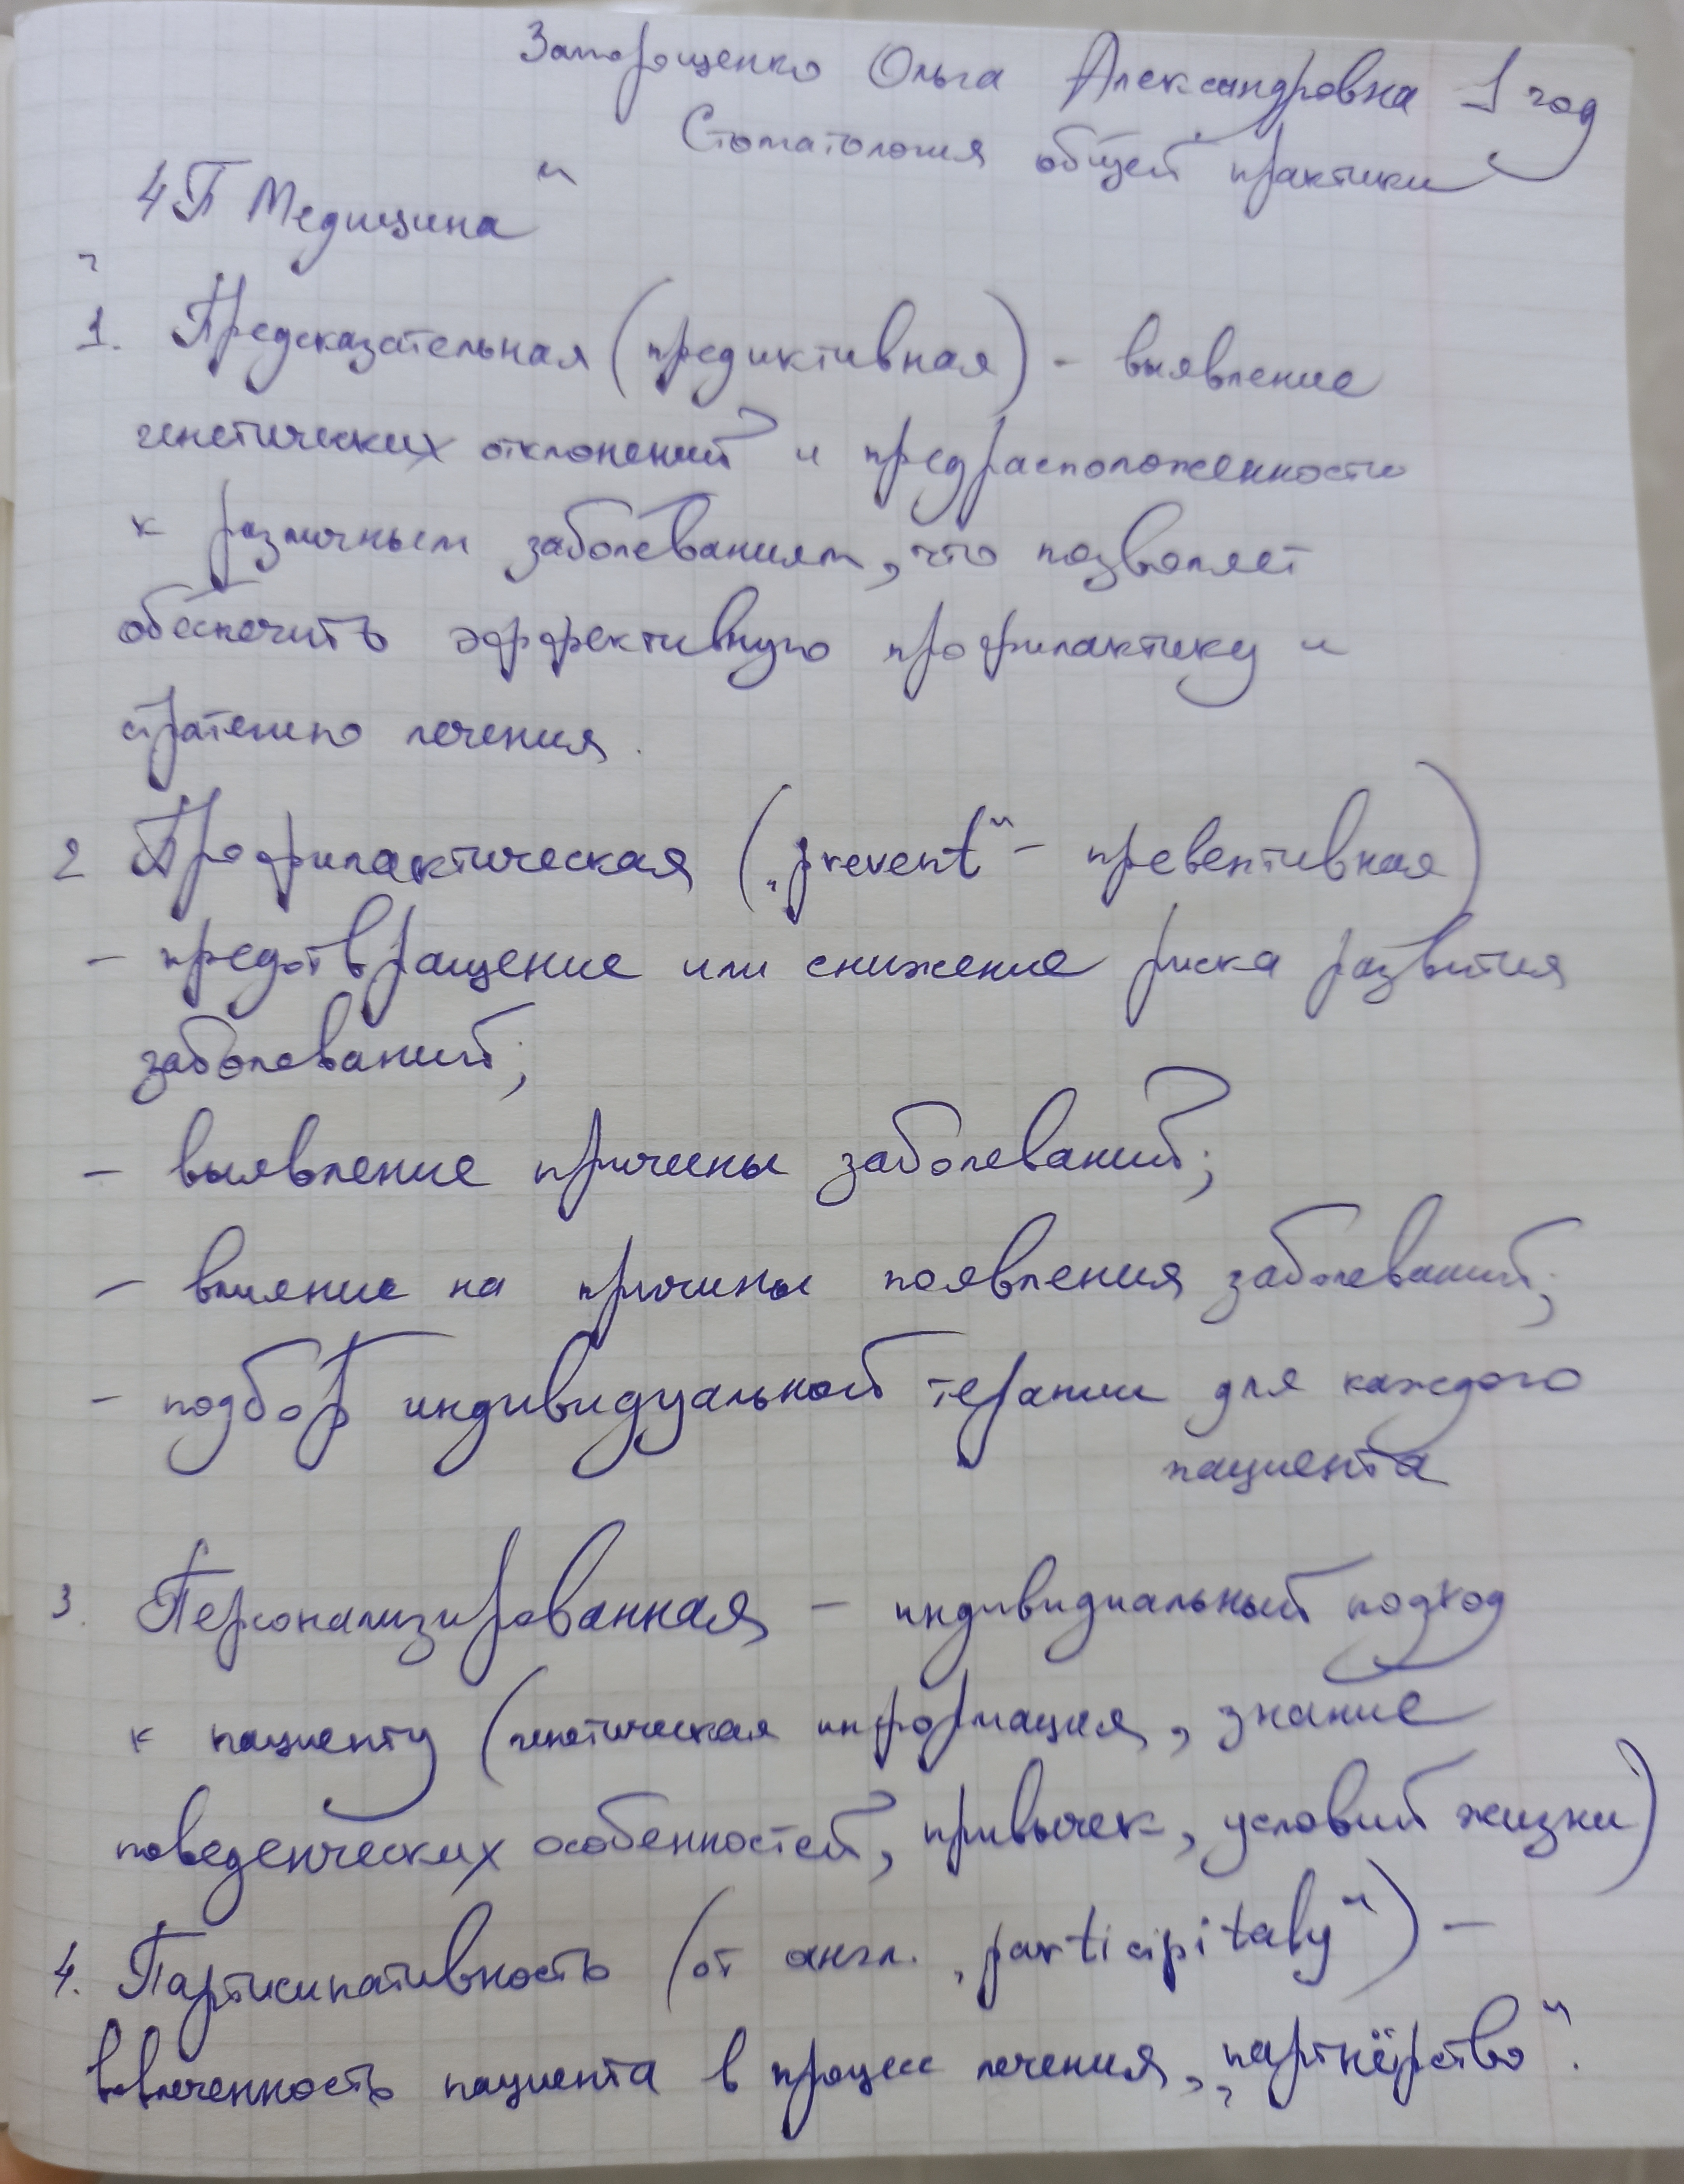 Запорощенко Ольга Александровна 1 год
Стоматология общей практики
„4П Медицина“
1. Предсказательная (предиктивная) - выявление
генетических отклонений и предрасположенности
к различным заболеваниям, что позволяет
обеспечить эффективную профилактику и
стратегию лечения.
2 Профилактическая („prevent“ - превентивная)
- предотвращение или снижение риска развития
заболеваний;
- выявление причины заболеваний;
- влияние на причины появления заболеваний;
- подбор индивидуальной терапии для каждого
пациента
3. Персонализированная - индивидиальный подход
к пациенту (генетическая информация, знание
поведенческих особенностей, привычек, условий жизни)
4. Партисипативность (от англ. „participitaly“) -
вовлеченность пациента в процесс лечения, „партнёрство“.